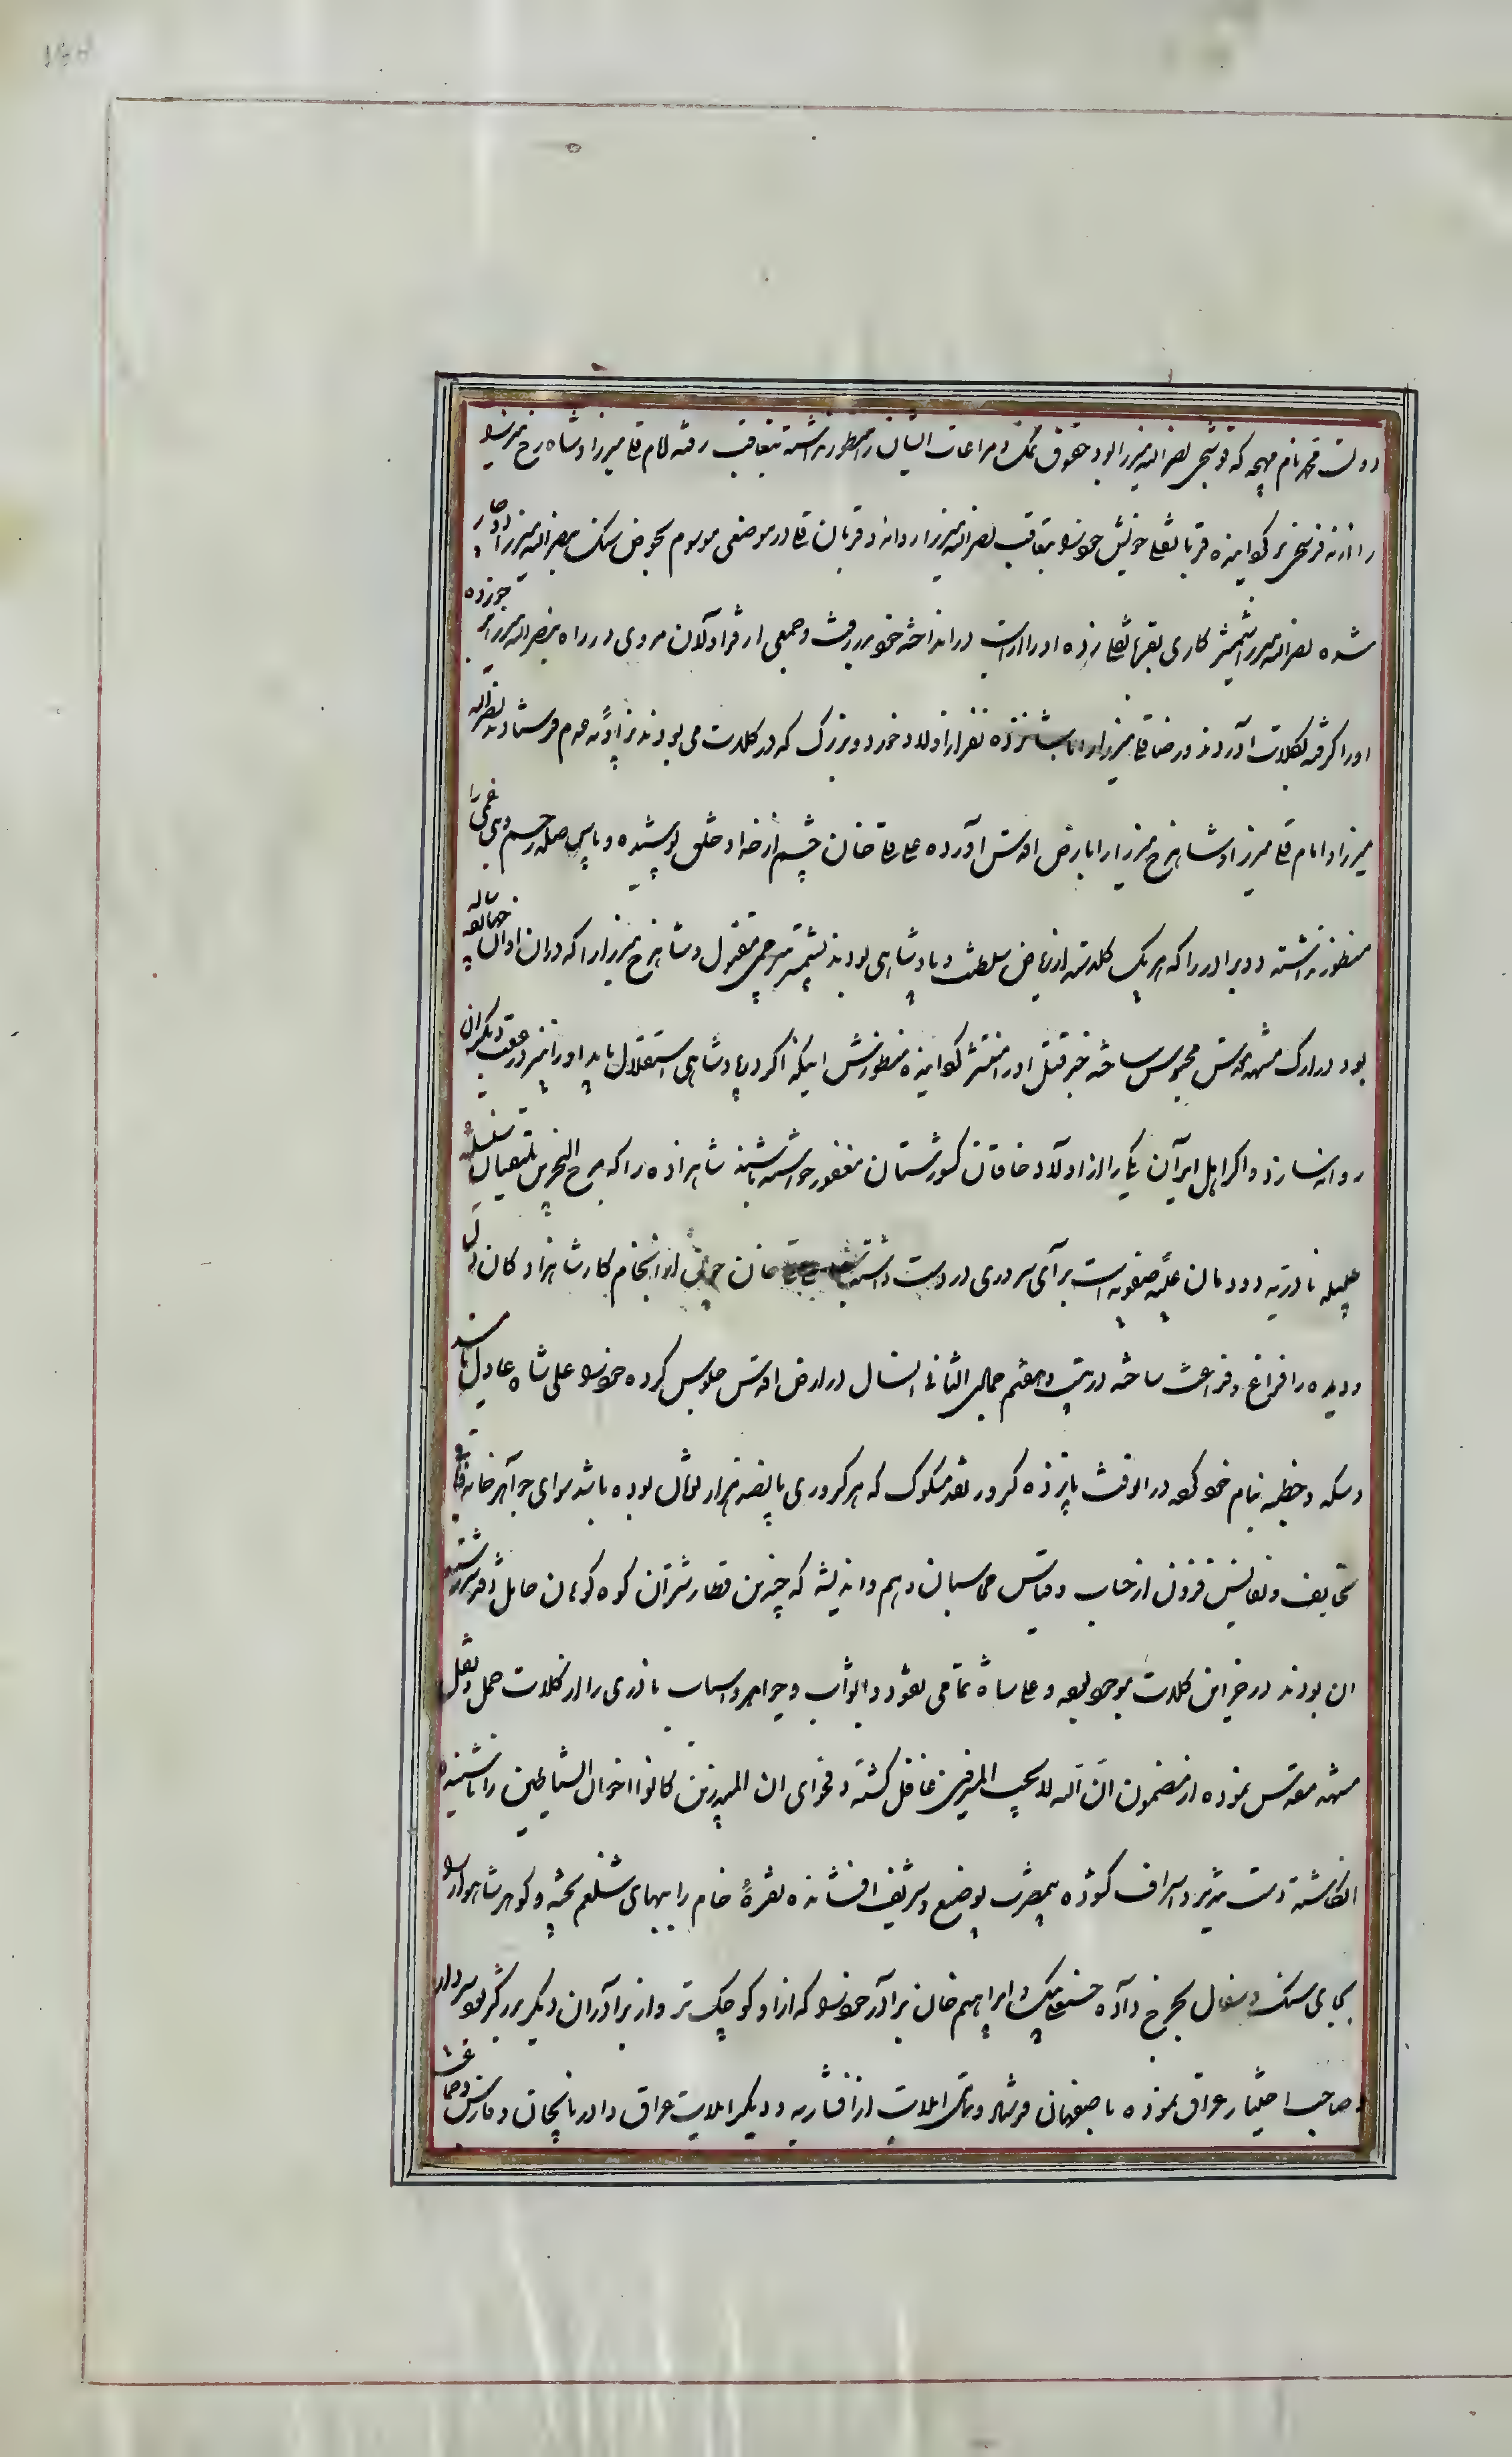 دولت محمد نام مهچه که قوشچی نصرالله میرزا بود حقوق نمک و مراعات ایشان را منظور نداشته بتعاقب رفته امام قلی میرزا و شاهرخ میرزا
را از نه فرسخی برگردانیده قربانعلی خویش خود را بتعاقب نصرالله میرزا روانه و قربان قلی در موضعی موسوم بحوض سنک بنصرالله میرزا دچار
شده نصرالله میرزا شمشیر کاری بقربانعلی زده او را از اسب در انداخته خود بدر رفت و جمعی از قراولان مروی در راه بنصرالله میرزا بر خورده
او را گرفته بکلات آوردند و رضاقلی میرزا را با شانزده نفر از اولاد خورد و بزرگ که در کلات می بودند نزاویه عدم فرستادند نصرالله
میرزا و امام قلی میرزا و شاهرخ میرزا را بارض اقدس آورده علی قلی خان چشم از خدا و خلق پوشیده و پاس صله رحم و بی غمی را
منظور نداشته دو برادر را که هر یک گلدسته از ریاض سلطنت و پادشاهی بودند بشمشیر بیرحمی مقتول و شاهرخ میرزا را که در ان اوان چهارده ساله
بود در ارک مشهد مقدس محبوس ساخته خبر قتل او را منتشر گردانیده منظورش اینکه اگر در پادشاهی استقلال یابد او را نیز در عقب دیگران
روانه سازد و اگر اهل ایران یکی را از اولاد خاقان کشورستان مغفور خواسته باشند شاهزاده را که مرج البحرین یلتقیان سلسله
جلیله نادریه و دودمان علیه صفویه است برای سروری در دست داشته باشد علی قلی خان چون از انجام کار شاهزادگان دل
و دیده را فراغ و فراغت ساخته در بیست و هفتم جمادی الثانی انسال در ارض اقدس جلوس کرده خود را علی شاه عادل نامید
و سکه و خطبه بنام خود کرد در انوقت پانزده کرور نقد مسکوک که هر کروری پانصد هزار تومان بوده باشد سوای جواهر خانه و باقی
تحایف و نفایس فزون از حساب و قیاس محاسبان وهم و اندیشه که چندین قطار شتران کوه کوهان حامل دفتر سر رشته
ان بودند در خزاین کلات موجود بود و علی شاه تمامی نقود و ابواب و جواهر و اسباب نادری را از کلات حمل و نقل
مشهد مقدس نموده از مضمون ان الله لا یحب المسرفین غافل گشته و فحوای ان المبذرین کانوا اخوان الشیاطین را ناشنیده
انگاشته دست تبذیر و اسراف گشوده بیمصرف بوضیع و شریف افشانده نقرهٔ خام را ببهای شلغم پخته و گوهر شاهوار را
بجای سنک و سفال بخرج داده حسنعلی بیک و ابراهیم خان برادر خود را که از او کوچک تر و از برادران دیگر بزرگتر بود سردار
و صاحب اختیار عراق نموده باصفهان فرستاد و تمامی ایلات از افشاریه و دیگر ایلات عراق و اذربایجان و فارس و